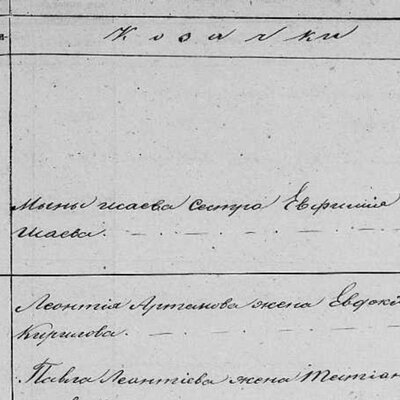 Козачки
Мины Исаева сестра Евфимия
Исаева.
Леонтія Артанова жена Евдокі
Кирилова.
Павла Леонтіева жена Татіан